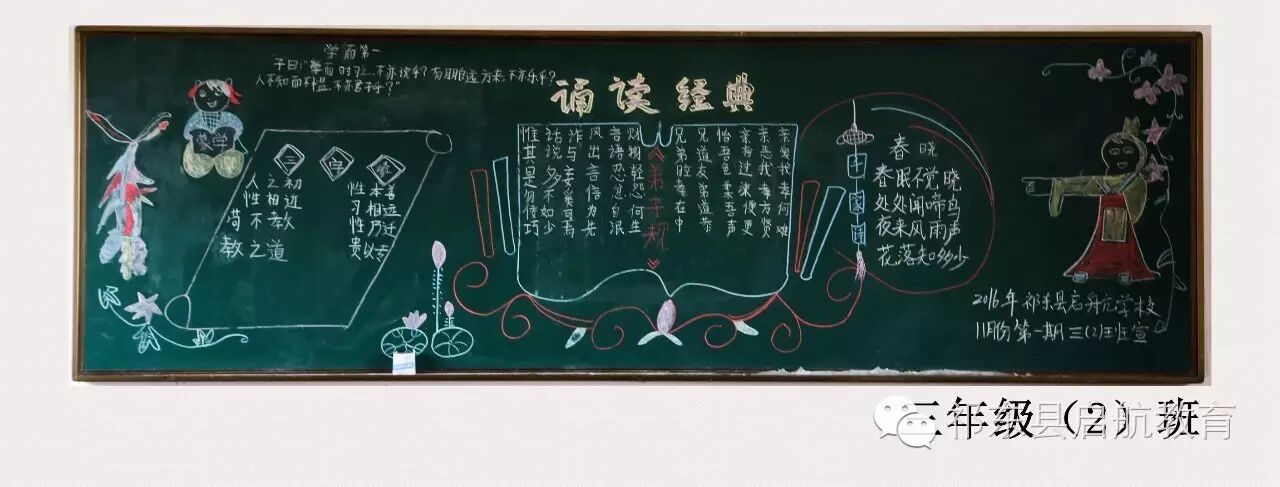 学而第一
子曰:"学而时习之,不亦说乎?有朋自远方来,不亦乐乎?
人不知而不愠,不亦君子乎?"
蒙学
三字经
人之初
性本善
性相近
习相远
苟不教
性乃迁
教之道
贵以专
诵读经典
亲爱我孝何难
亲恶我孝方贤
亲有过谏使更
怡吾色柔吾声
兄道友弟道恭
兄弟睦孝在中
《弟子规》
财物轻怨何生
言语忍忿自泯
出言信为先
诈与妄奚可焉
话说多不如少
惟其是勿佞巧
中国
春晓
春眠不觉晓
处处闻啼鸟
夜来风雨声
花落知多少
2016年祁东县启航学校
11月份第一期三(2)班宣
三年级(2)班
祁东县启航教育